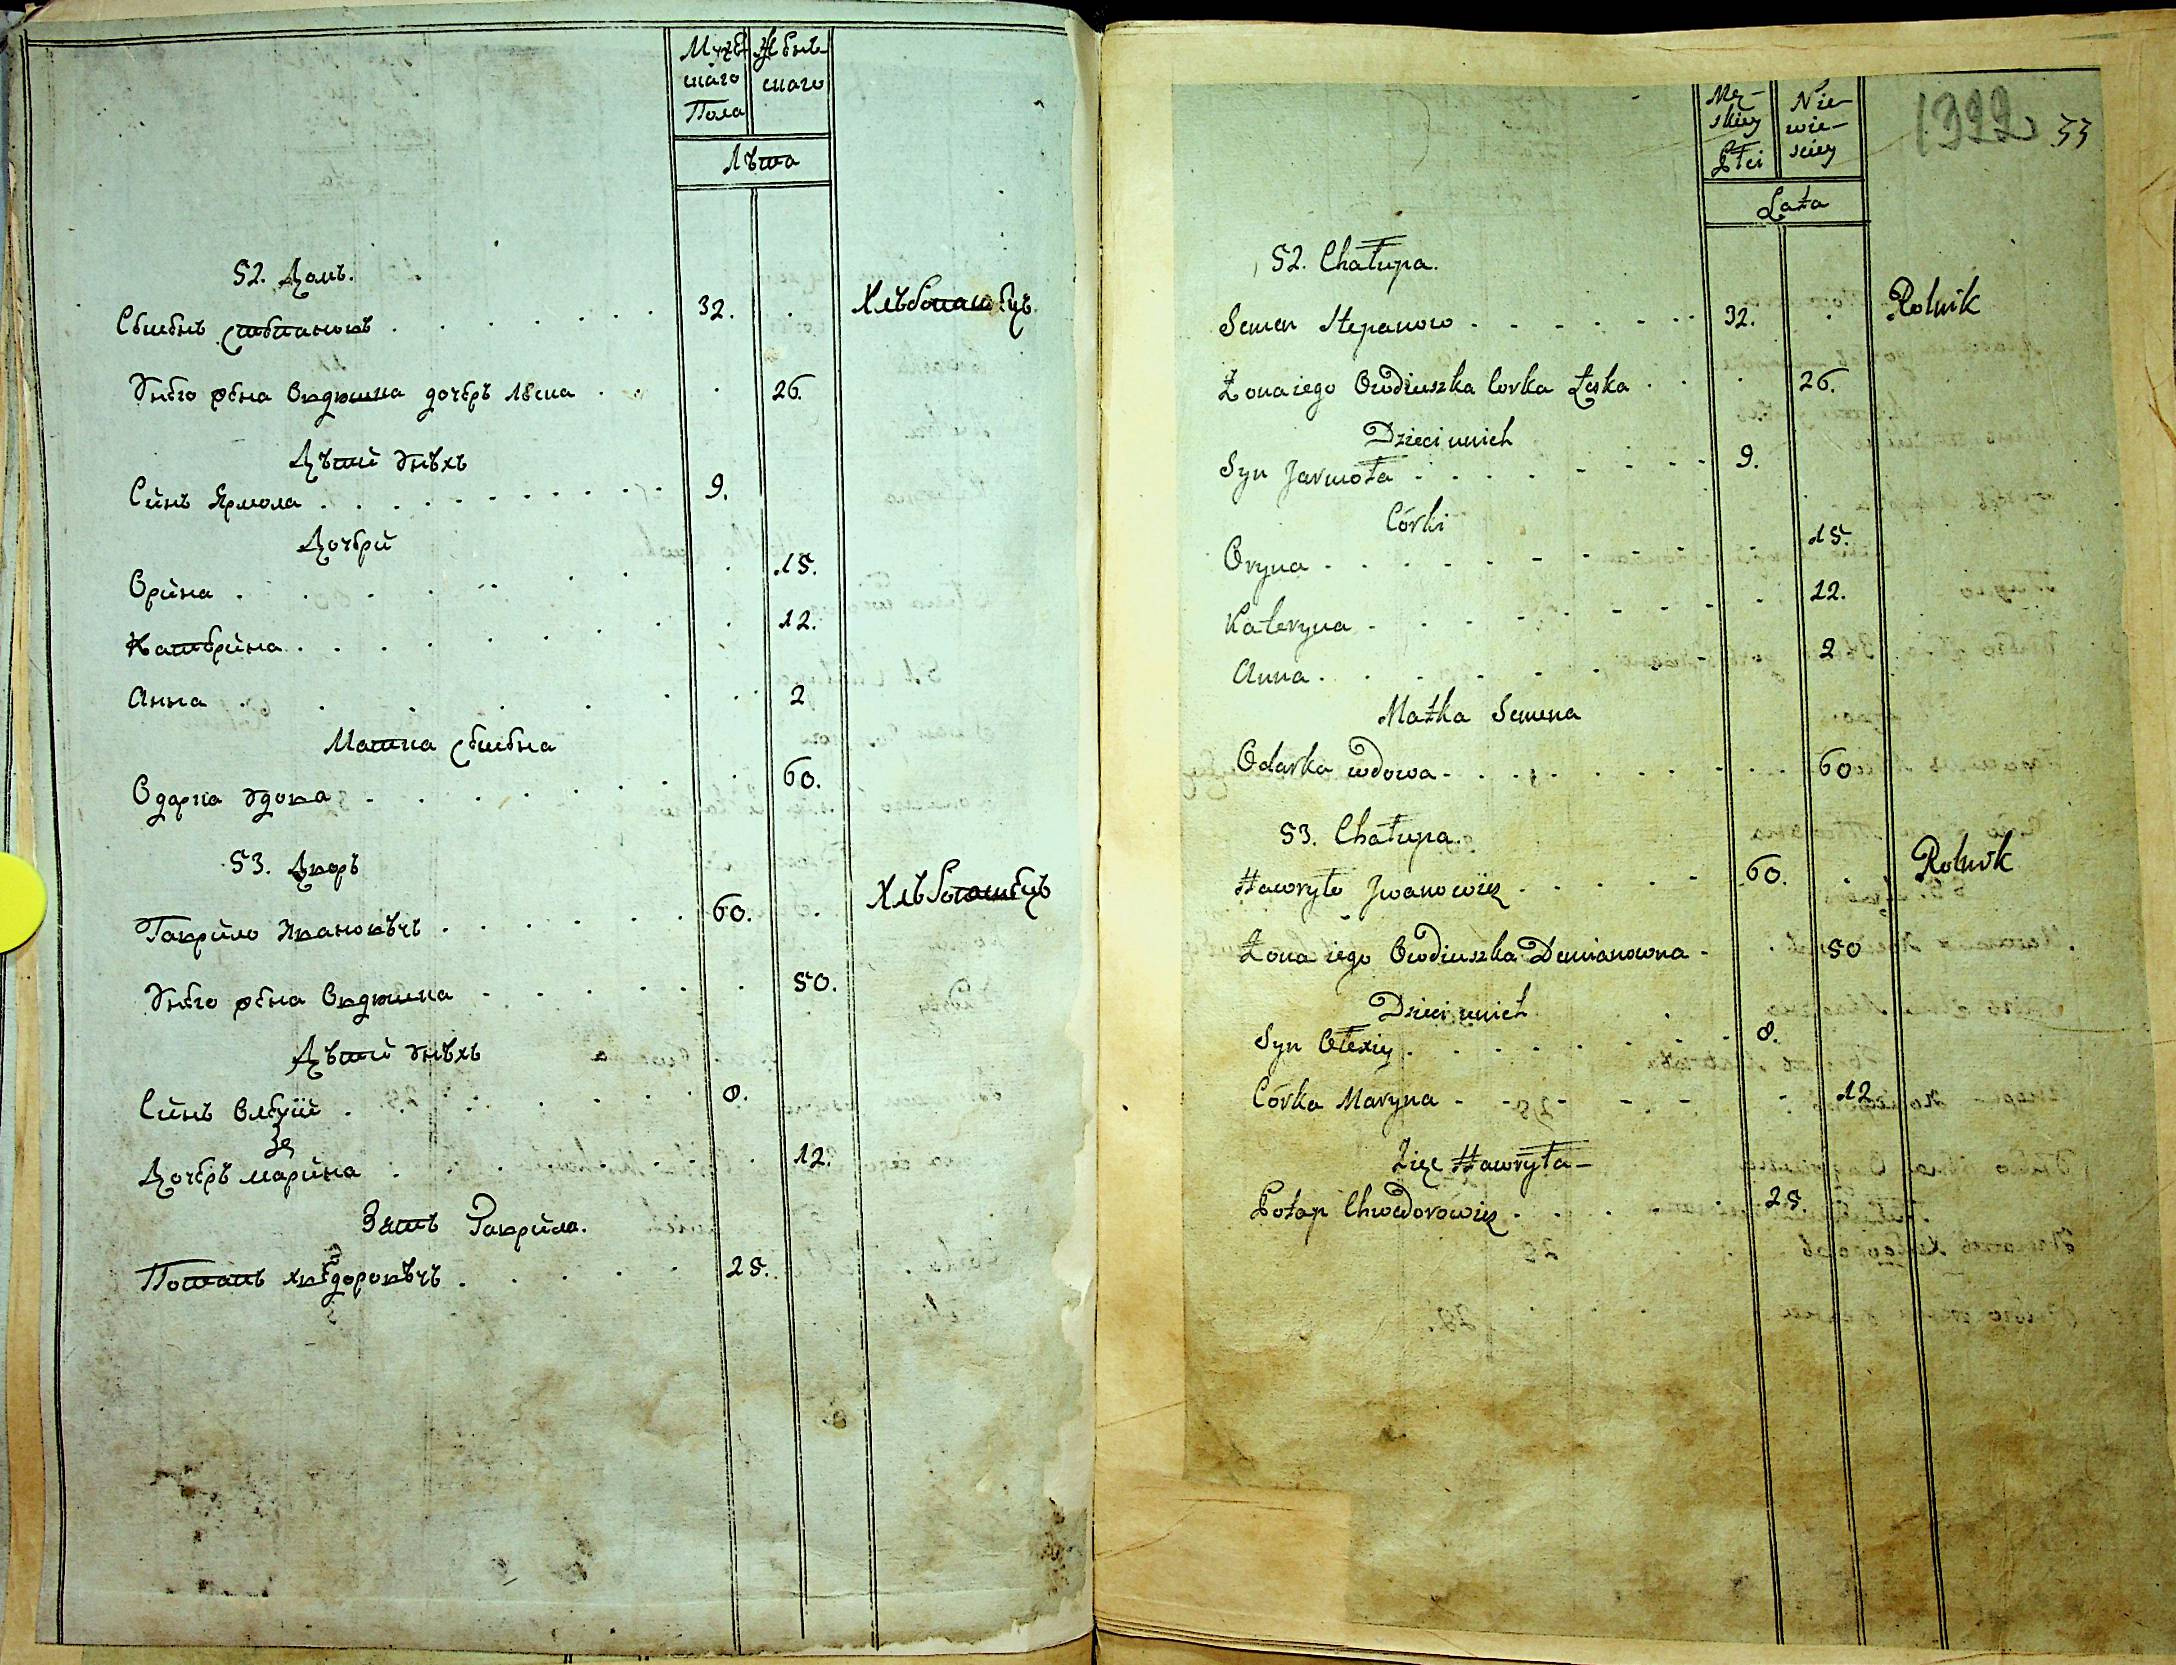 Муже
скаго
Пола
Женъ
скаго
Лѣта
52. Домъ.
Семенъ Степановъ . . . . . . . 32. . Хлѣбопашецъ
Унего жена Овдюшка дочеръ Леска . . . 26.
Дѣтй Унѣхъ
Сйнъ Ярмола . . . . . . . . . 9.
Дочерй
Орйна . . . . . . . 15.
Катерйна . . . . . . . 12.
Анна . . . . . . 2
Матка Семена
Одарка Удова . . . . . . . 60.
53. Дворъ
Гаврйло Ивановѣчъ . . . . . 60. . Хлѣбопашецъ
Унего жена Овдюшка . . . . . 50.
Дѣтй Унѣхъ
Сйнъ Олексій . . . . . . 8.
Дочеръ марйна . . . . . . 12.
Зять Гаврйла.
Потапъ хведоровѣчъ . . . . . 25.
Mę-
skiey
Płci
Nie-
wie-
sciey
1322 53
Lata
52. Chałupa.
Semen Stepanow . . . . . . 32. . Rolnik
Żona iego Owdiuszka corka Łeska . . . 26.
Dzieci unich
Syn Jarmoła . . . . . . . . 9.
Córki
Oryna . . . . . . . . 15.
Kateryna . . . . . . . . 12.
Anna . . . . . . . 2
Matka Semena
Odarka wdowa . . . . . . . . . 60
53. Chałupa.
Hawryło Jwanowicz . . . . . 60. . Rolnik
Żona iego Owdiuszka Demianowna - . 50
Dzieci unich
Syn Ołexiy . . . . . . . . 8.
Córka Maryna - - - - - - - 12
Zięc Hawryła -
Potap Chwedorowicz . . . . . 25.